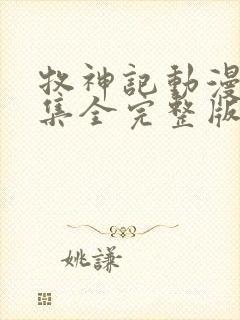 牧神記動漫
集全完整版
姚謙